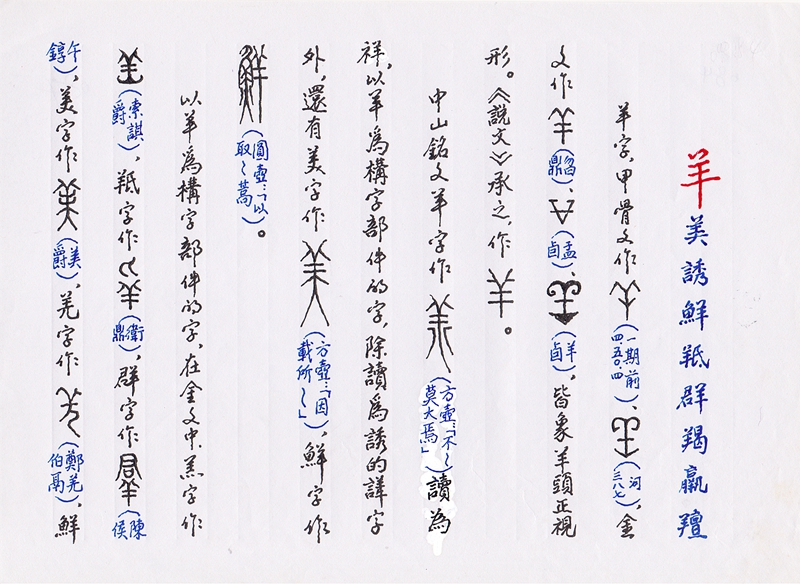 羊美誘鮮羝群羯羸羶
羊字,甲骨文作(一期前四.五0.四)、(河三八七),金
文作(舀鼎)、(盂卣)、(羊卣),皆象羊頭正視
形。《說文》承之,作。
中山銘文羊字作(方壺:「不~莫大焉」)讀為
祥。以羊為構字部件的字,除讀為誘的詳字
外,還有美字作(方壺:「因載所~」),鮮字作
(圓壺:「以取~蒿」)。
以羊為構字部件的字,在金文中,羔字作
(索諆爵),羝字作(衛鼎),群字作(陳侯
午錞),美字作(美爵),羌字作(鄭羌伯鬲),鮮